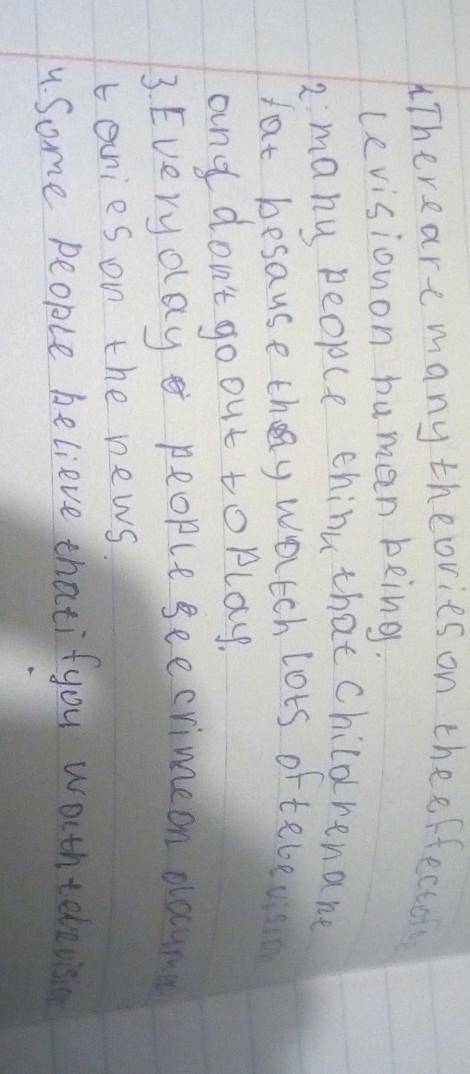 1.There are many theories on the effect of te
levision on human being.
2.many people think that children are
fat besause they watch lots of television
and don't go out to play.
3.Every day people see crime on
taries or the news.
4.Some people believe that if you wacth television